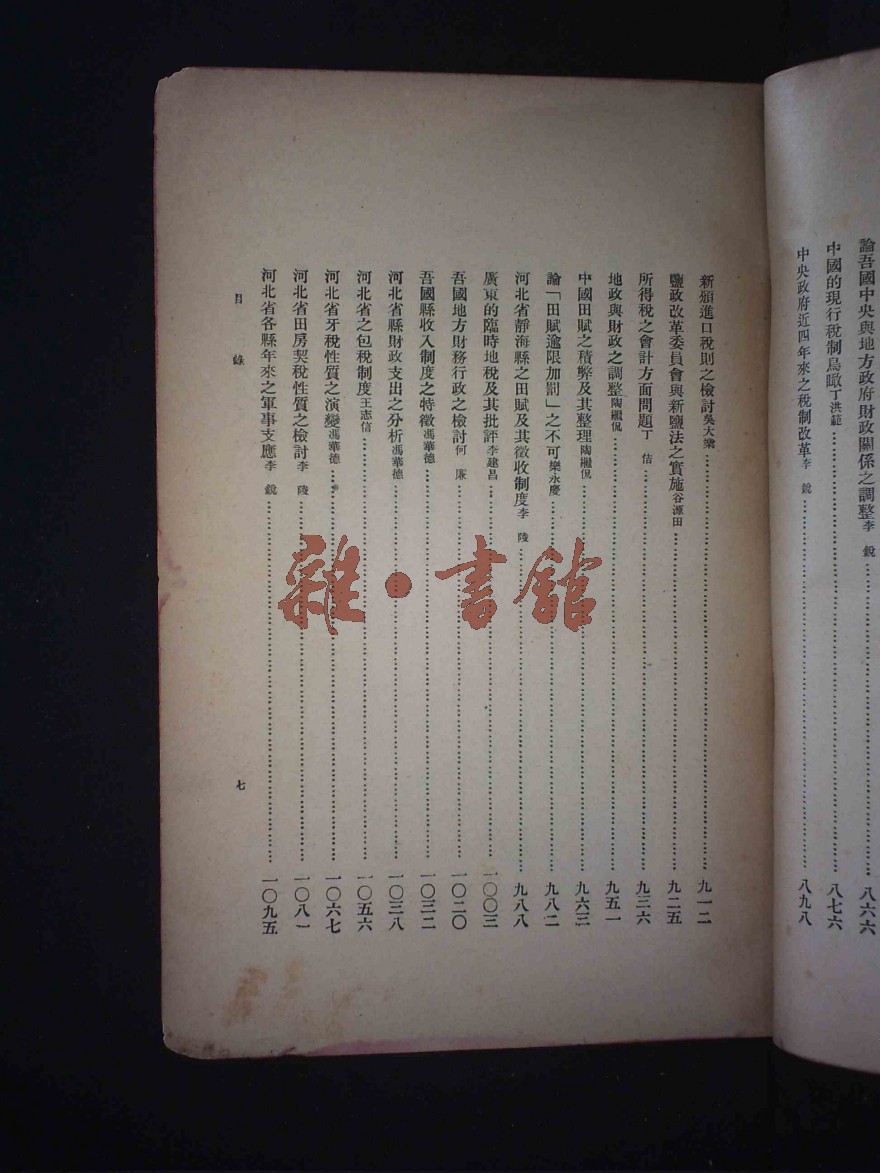 論吾國中央與地方政府財政關係之調整李　銳……八六六
中國的現行稅制鳥瞰丁洪範……八七六
中央政府近四年來之稅制改革李　銳……八九八
新頒進口稅則之檢討吳大業……九一二
鹽政改革委員會與新鹽法之實施谷源田……九二五
所得稅之會計方面問題丁　佶……九三六
地政與財政之調整陶繼侃……九五一
中國田賦之積弊及其整理陶繼侃……九六三
論「田賦逾限加罰」之不可樂永慶……九八二
河北省靜海縣之田賦及其徵收制度李　陵……九八八
廣東的臨時地稅及其批評李建昌……一〇〇三
吾國地方財務行政之檢討何　廉……一〇二〇
吾國縣收入制度之特徵馮華德……一〇三二
河北省縣財政支出之分析馮華德……一〇三八
河北省之包稅制度王志信……一〇五六
河北省牙稅性質之演變馮華德……一〇六七
河北省田房契稅性質之檢討李　陵……一〇八一
河北省各縣年來之軍事支應李　銳……一〇九五
目　錄
七
雜·書館